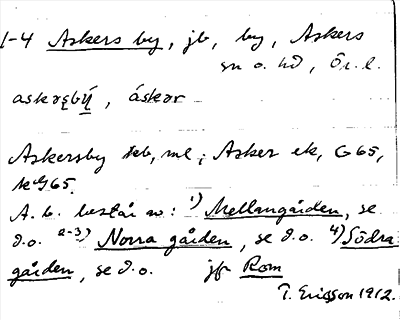 1-4 Askers by, jb, by, Askers
sn o. hd, Ö.r.l.
askɷbý, áskɷr
Askersby skb, ml; Asker ek, G65,
k G65.
A. b. består av: 1) Mellangården, se
d.o. 2-3) Norra gården, se d.o. 4) Södra
gården, se d.o. jfr Rom
T. Ericsson 1912.